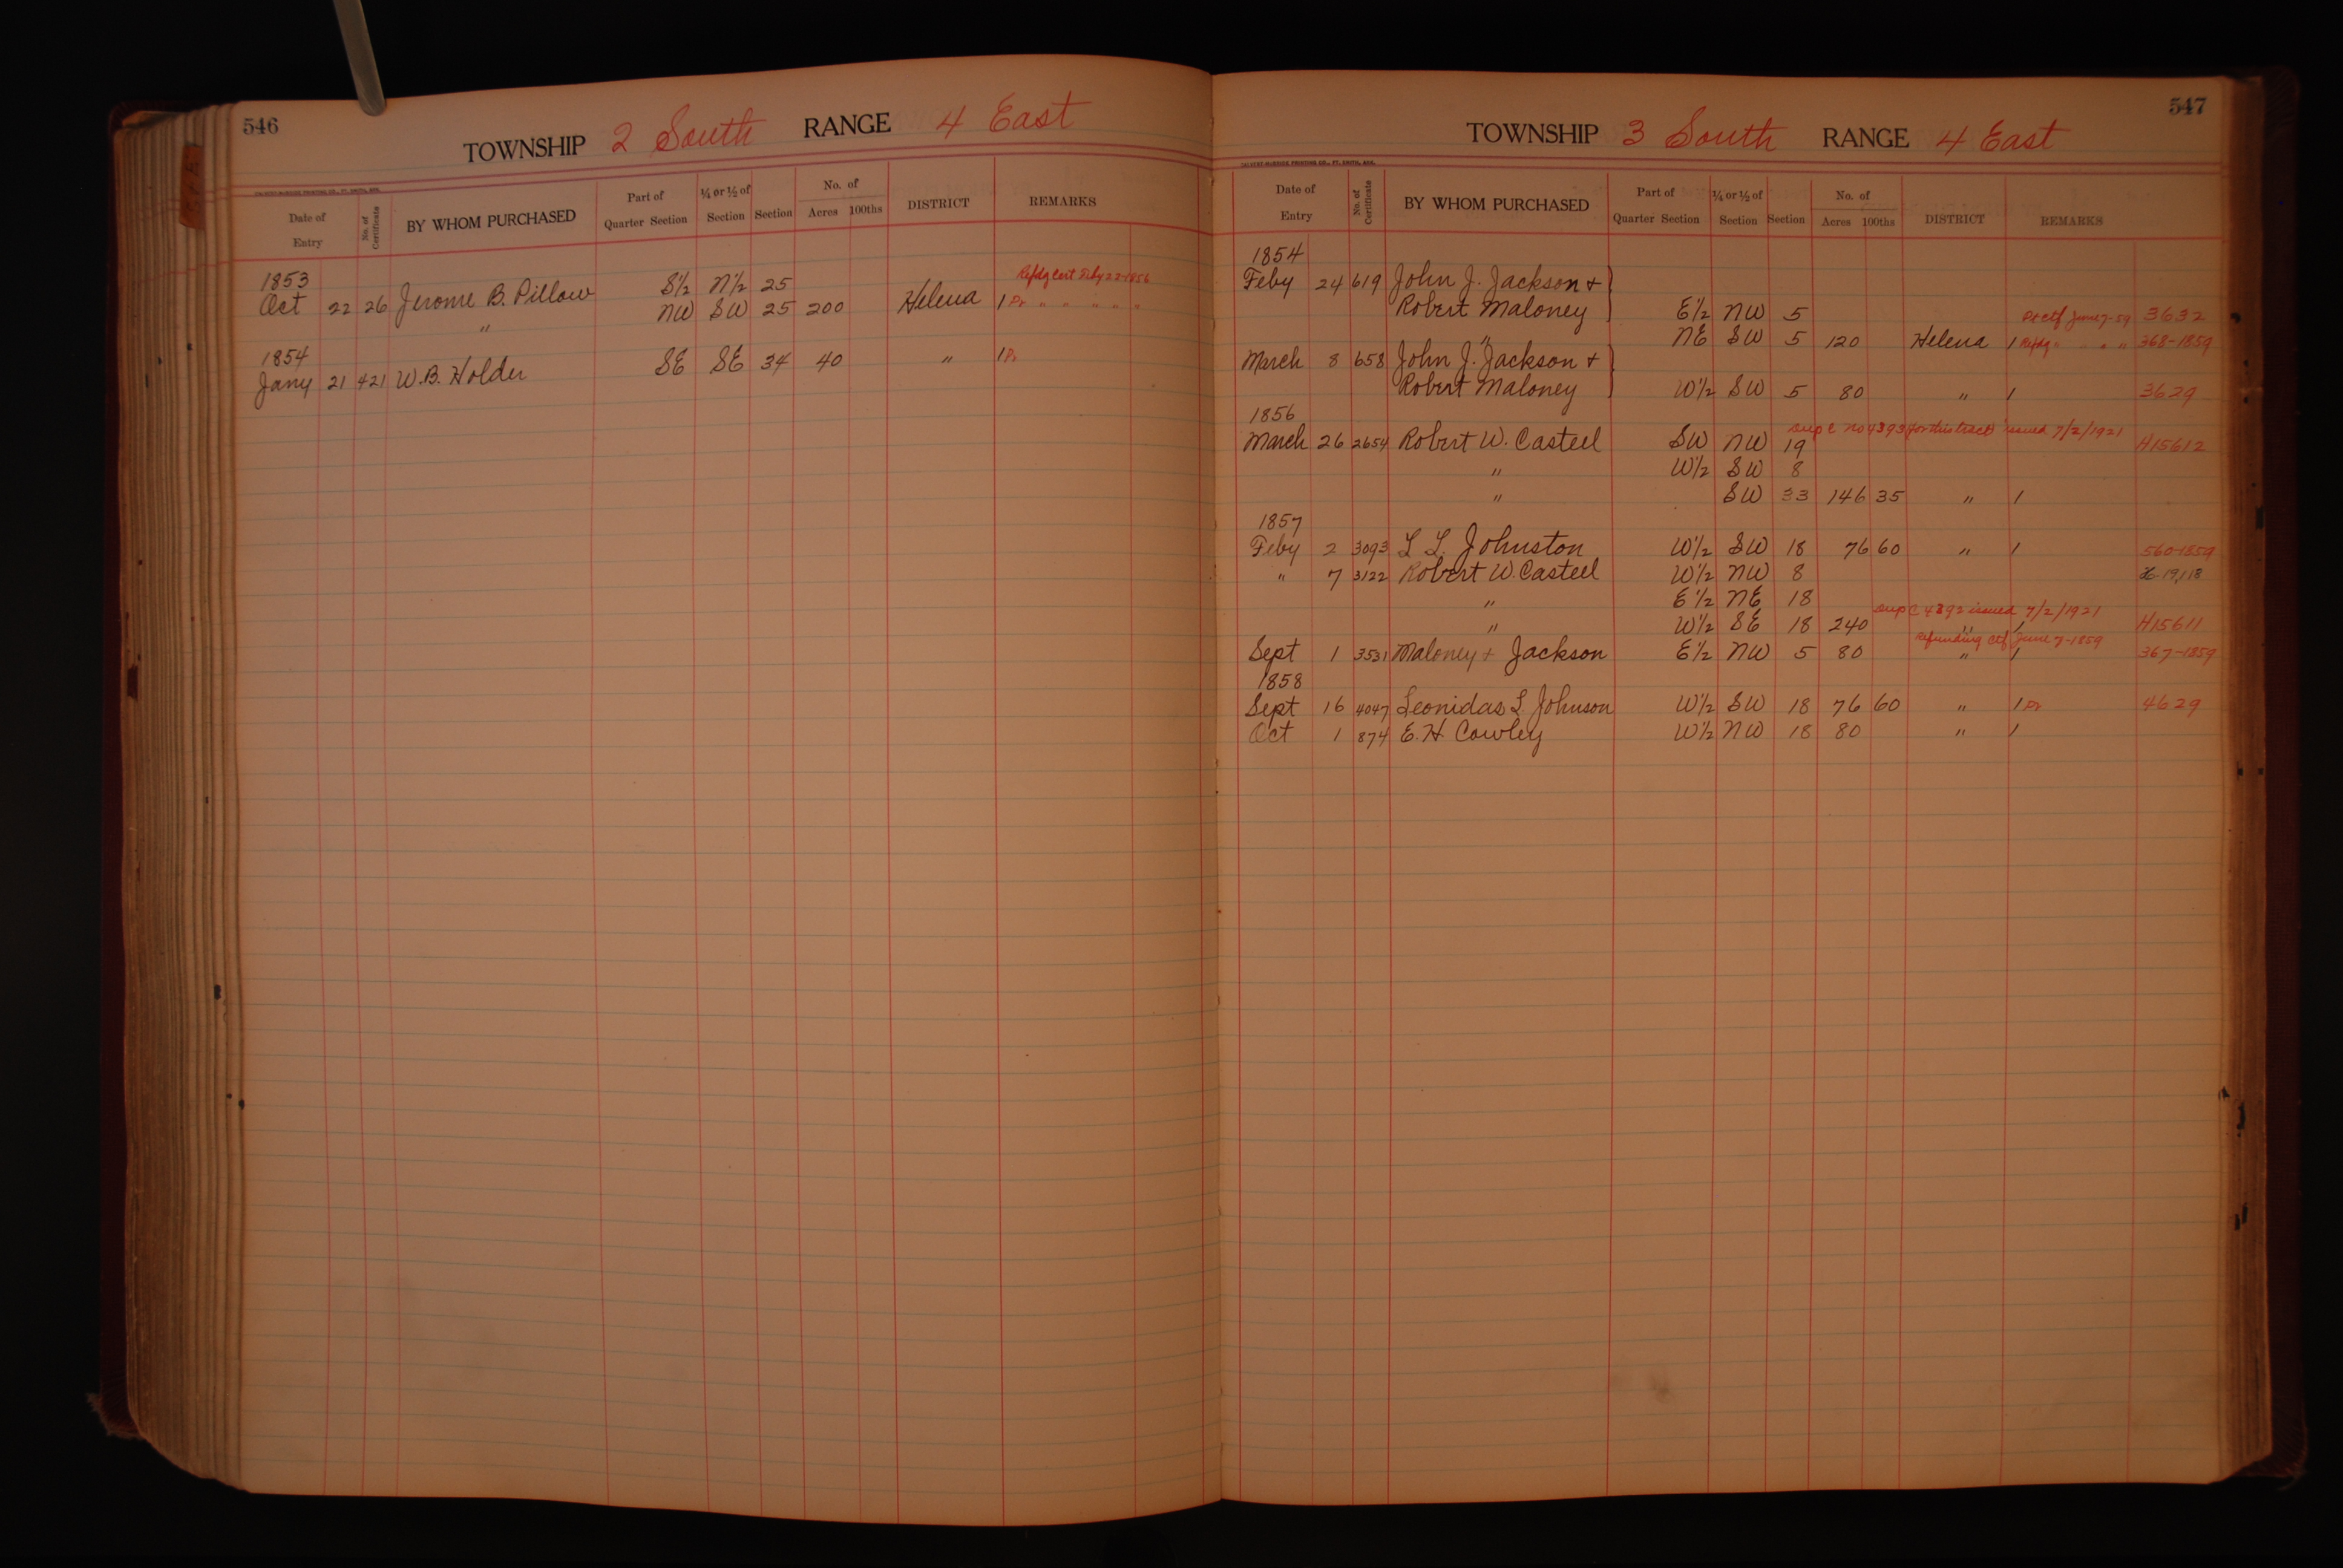 546
TOWNSHIP 2 South RANGE 4 East
Date of Entry No. of Certificate BY WHOM PURCHASED Part of Quarter Section ¼ or ½ of Section Section No. of Acres 100ths DISTRICT REMARKS
1853
Refdg Cert Feby 22-1856
Oct 22 26 Jerome B. Pillow S½ N½ 25
" NW SW 25 200 Helena 1 Pr " " " " "
1854
Jany 21 421 W.B. Holder SE SE 34 40 " 1 Pr
547
TOWNSHIP 3 South RANGE 4 East
CALVERT-McBRIDE PRINTING CO., FT. SMITH, ARK.
Date of Entry No. of Certificate BY WHOM PURCHASED Part of Quarter Section ¼ or ½ of Section Section No. of Acres 100ths DISTRICT REMARKS
1854
Feby 24 619 John J. Jackson +
Robert Maloney E½ NW 5 ctf June 7-59 3632
" NE SW 5 120 Helena 1 Refdg " " " " 368-1859
March 8 658 John J. Jackson +
Robert Maloney W½ SW 5 80 " 1 3629
1856
Dup C No 4393 for this tract issued 7/2/1921
March 26 2654 Robert W. Casteel SW NW 19 H15612
" W½ SW 8
" SW 33 146 35 " 1
1857
Feby 2 3093 L L. Johnston W½ SW 18 76 60 " 1 560-1859
" 7 3122 Robert W. Casteel W½ NW 8
" E½ NE 18
Dup C 4392 issued 7/2/1921
" W½ SE 18 240 " 1 H15611
Refunding ctf June 7-1859
Sept 1 3531 Maloney + Jackson E½ NW 5 80 " 1 367-1859
1858
Sept 16 4047 Leonidas L. Johnson W½ SW 18 76 60 " 1 Pr 4629
Oct 1 874 E. H. Cowley W½ NW 18 80 " 1